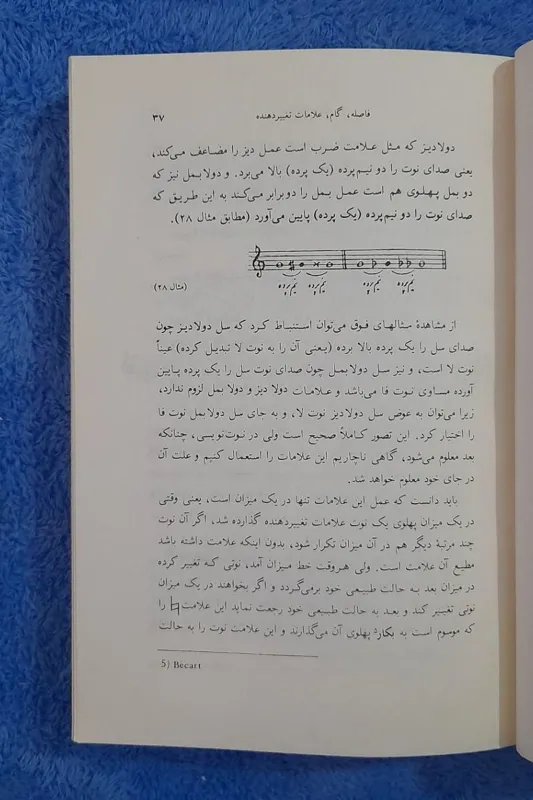 فاصله، گام، علامات تغییردهنده ۳۷
دولادیز که مثل علامت ضرب است عمل دیز را مضاعف می‌کند،
یعنی صدای نوت را دو نیم‌پرده (یک پرده) بالا می‌برد. و دولابمل نیز که
دو بمل پهلوی هم است عمل بمل را دوبرابر می‌کند به این طریق که
صدای نوت را دو نیم‌پرده (یک پرده) پایین می‌آورد (مطابق مثال ۲۸).
نیم‌پرده نیم‌پرده نیم‌پرده نیم‌پرده
(مثال ۲۸)
از مشاهدهٔ سئالهای فوق می‌توان استنباط کرد که سل دولادیز چون
صدای سل را یک پرده بالا برده (یعنی آن را به نوت لا تبدیل کرده) عیناً
نوت لا است، و نیز سل دولابمل چون صدای نوت سل را یک پرده پایین
آورده مساوی نوت فا می‌باشد و علامات دولا دیز و دولا بمل لزوم ندارد،
زیرا می‌توان به عوض سل دولادیز نوت لا، و به جای سل دولابمل نوت فا
را اختیار کرد. این تصور کاملاً صحیح است ولی در نوت‌نویسی، چنانکه
بعد معلوم می‌شود، گاهی ناچاریم این علامات را استعمال کنیم و علت آن
در جای خود معلوم خواهد شد.
باید دانست که عمل این علامات تنها در یک میزان است، یعنی وقتی
در یک میزان پهلوی یک نوت علامات تغییردهنده گذارده شد، اگر آن نوت
چند مرتبهٔ دیگر هم در آن میزان تکرار شود، بدون اینکه علامت داشته باشد
مطیع آن علامت است. ولی هروقت خط میزان آمد، نوتی که تغییر کرده
در میزان بعد به حالت طبیعی خود برمی‌گردد و اگر بخواهند در یک میزان
نوتی تغییر کند و بعد به حالت طبیعی خود رجعت نماید این علامت ♮ را
که موسوم است به بکار⁵ پهلوی آن می‌گذارند و این علامت نوت را به حالت
5) Bécart